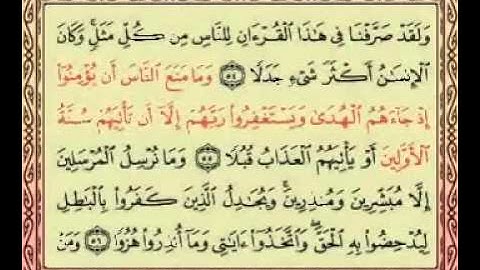 وَلَقَدْ صَرَّفْنَا فِى هَٰذَا ٱلْقُرْءَانِ لِلنَّاسِ مِن كُلِّ مَثَلٍ ۚ وَكَانَ
ٱلْإِنسَٰنُ أَكْثَرَ شَىْءٍ جَدَلًا ٥٤ وَمَا مَنَعَ ٱلنَّاسَ أَن يُؤْمِنُوٓا۟
إِذْ جَآءَهُمُ ٱلْهُدَىٰ وَيَسْتَغْفِرُوا۟ رَبَّهُمْ إِلَّآ أَن تَأْتِيَهُمْ سُنَّةُ
ٱلْأَوَّلِينَ أَوْ يَأْتِيَهُمُ ٱلْعَذَابُ قُبُلًا ٥٥ وَمَا نُرْسِلُ ٱلْمُرْسَلِينَ
إِلَّا مُبَشِّرِينَ وَمُنذِرِينَ ۚ وَيُجَٰدِلُ ٱلَّذِينَ كَفَرُوا۟ بِٱلْبَٰطِلِ
لِيُدْحِضُوا۟ بِهِ ٱلْحَقَّ ۖ وَٱتَّخَذُوٓا۟ ءَايَٰتِى وَمَآ أُنذِرُوا۟ هُزُوًا ٥٦ وَمَنْ